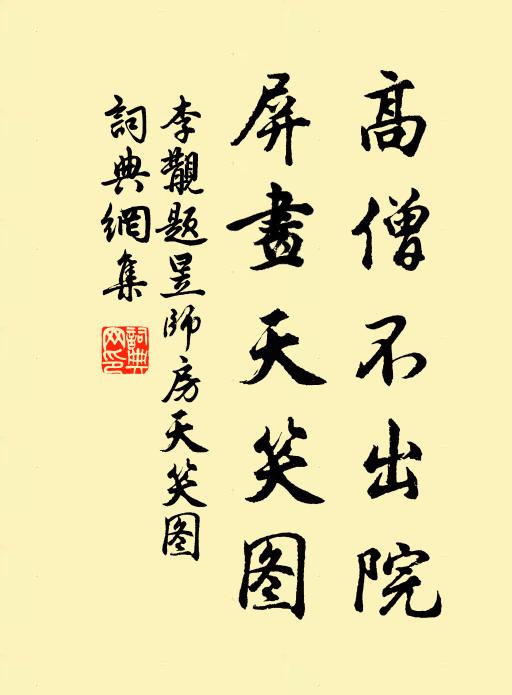 高僧不出院
屏畫天笑图
李覯题昱師房天笑图
詞典網集
詞典
网印